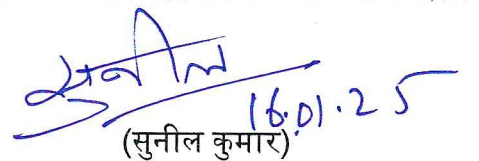 सुनील
16.01.25
(सुनील कुमार)